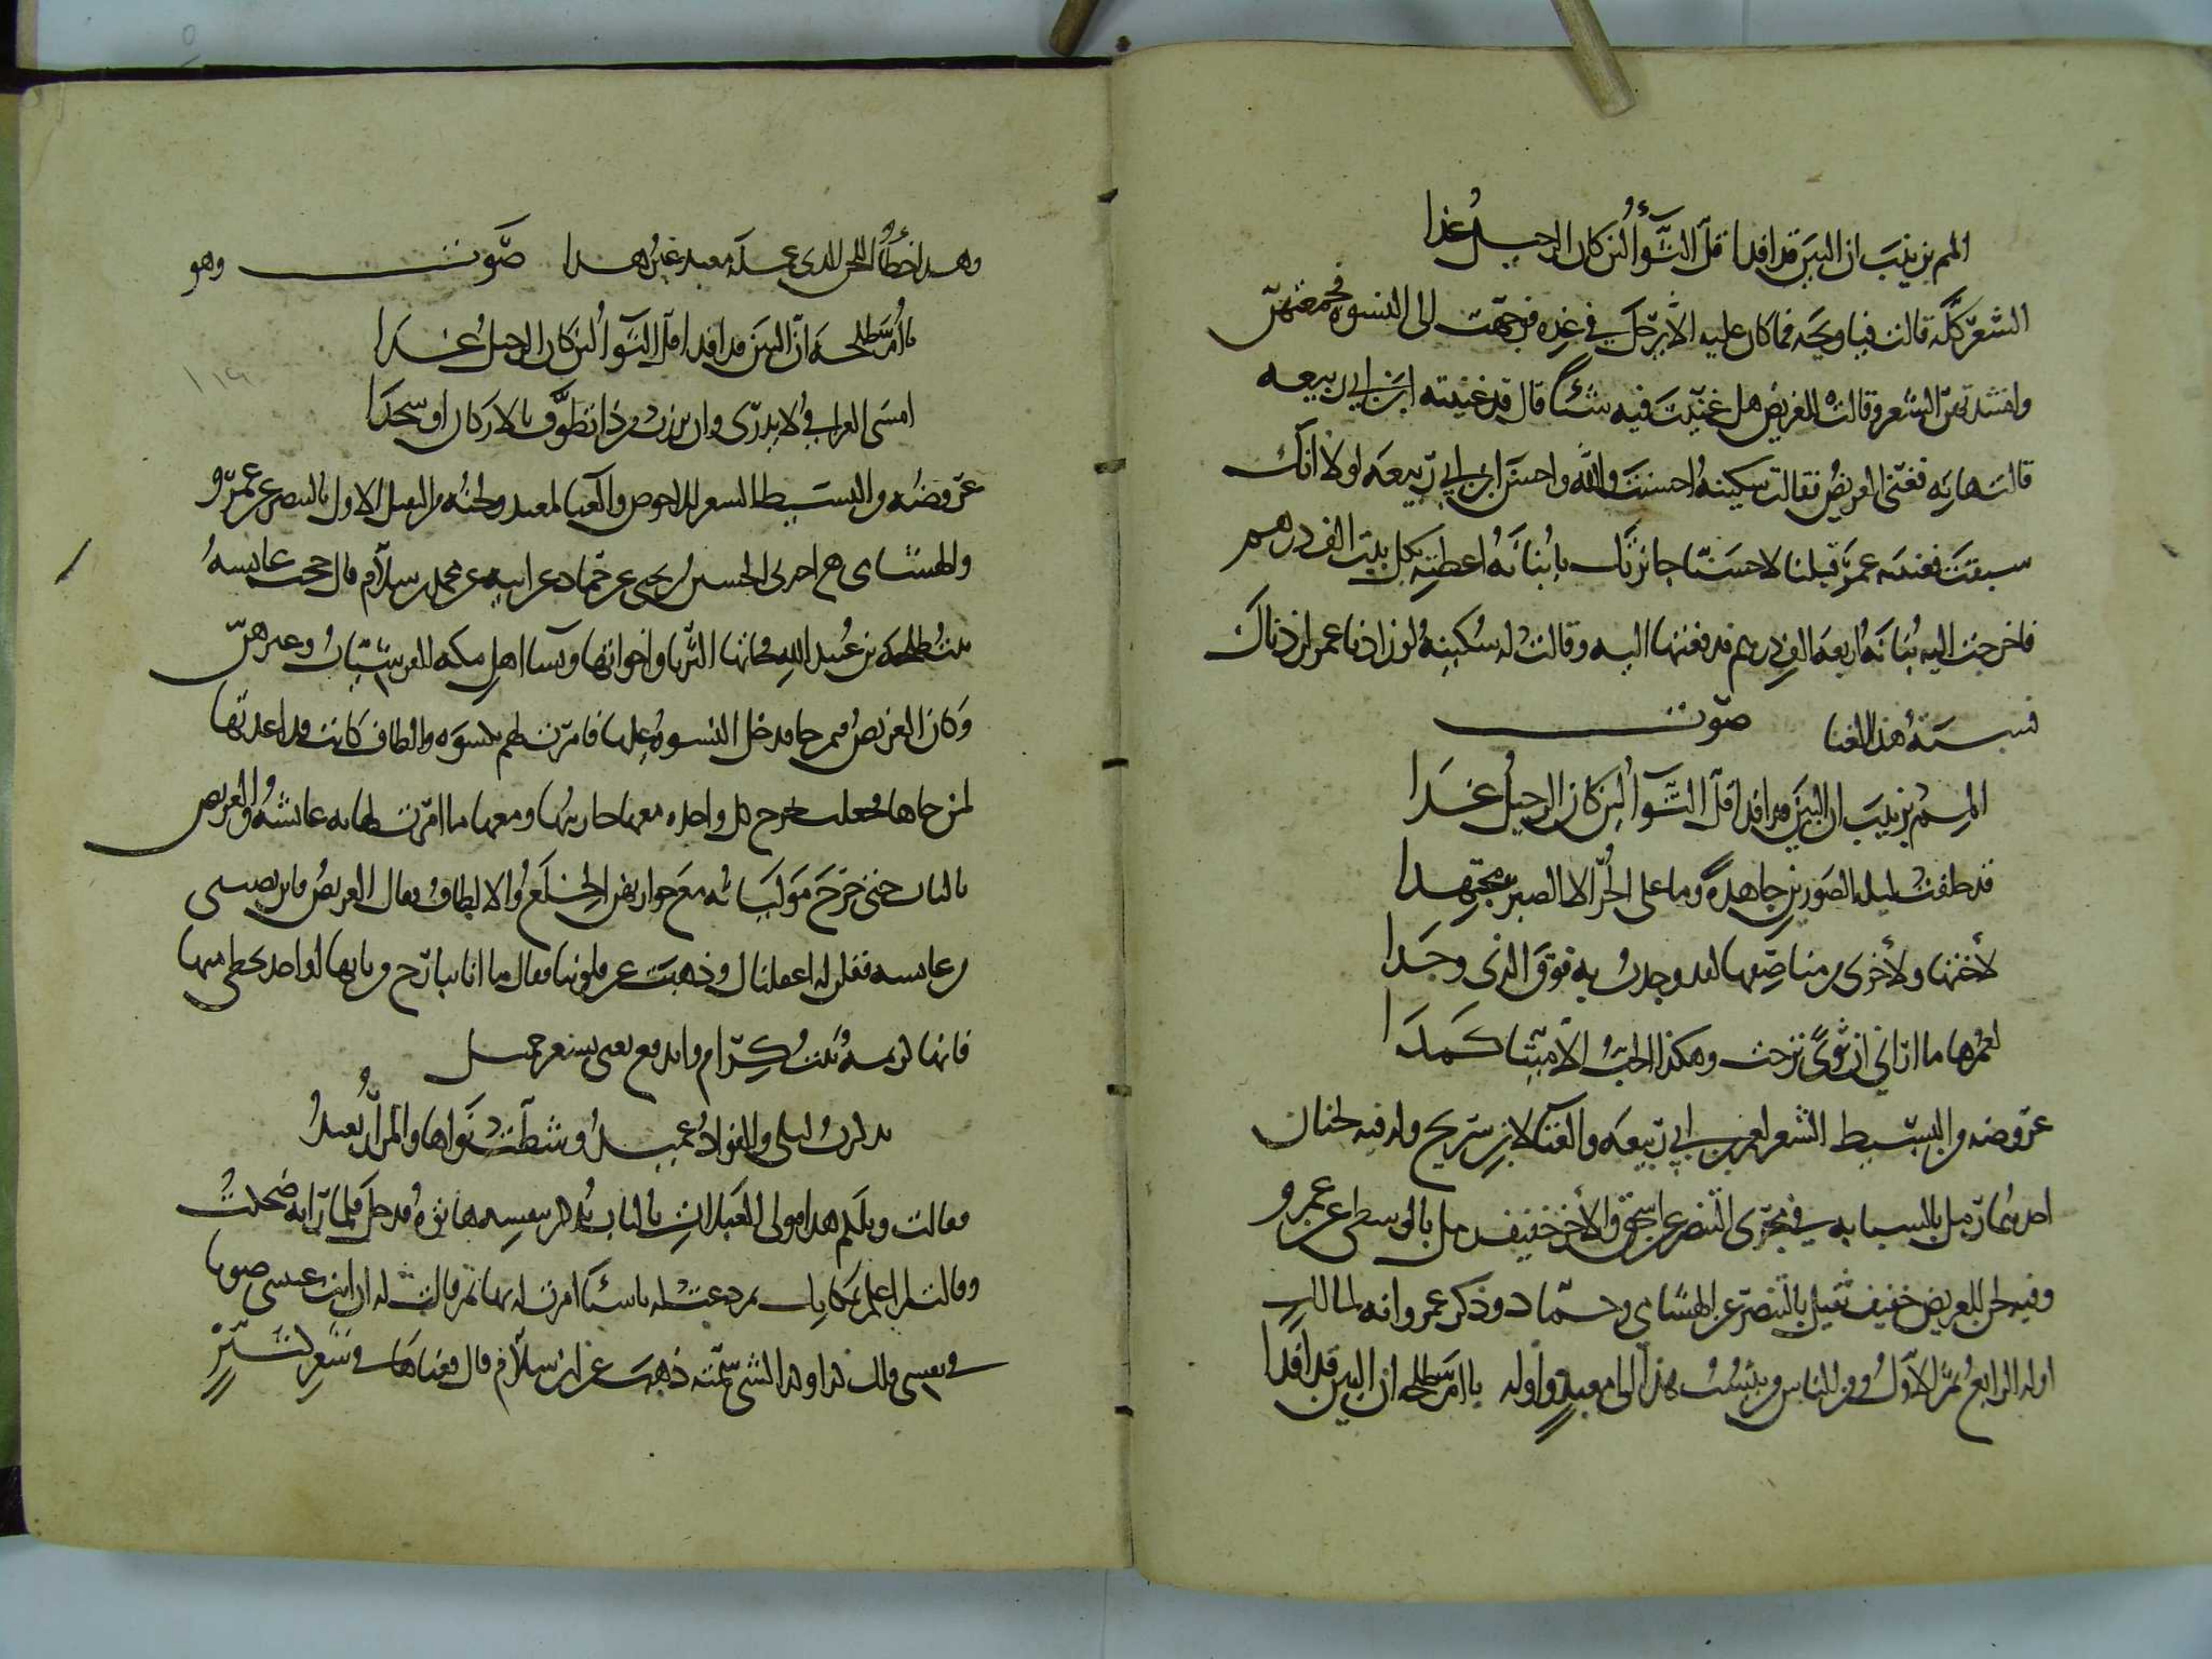 المم بزينب ان البين قد افدا قلّ الثوأ لئن كان الرحيل غدا
الشعر كله قالت فيا ويحه فما كان عليه الا يرحل في غده فوجهت الى النسوه فجمعتهن
وانشدتهن الشعر وقالت للغريض هل غنيت فيه شيئا قال قد غنيته ابن ابي ربيعه
قالت هاته فغنى الغريض فقالت سكينه احسنت والله واحسن ابن ابي ربيعه لولا انك
سبقت فغنيته عمر قبلنا لاحسنا جائزتك يا بنانه اعطيه بكل بيت الف درهم
فاخرجت اليه بنانه اربعه الف درهم فدفعتها اليه وقالت له سكينه لو زادنا عمر لزدناك
نسبه هذا الغنا صوت
المم بزينب ان البين قد افدا قل الثوا لئن كان الرحيل غدا
قد حلفت ليله الصورين جاهدة وما على الحر الا الصبر مجتهدا
لأختها ولأخرى من مناصفها لقد وجدت به فوق الذي وجدا
لعمرها ما اراني ان نوى نزحت وهكذا الحب الا ميتا كمدا
عروضه من البسيط الشعر لعمر بن ابي ربيعه والغنا لابن سريح وله فيه لحنان
احدهما رمل بالسبابه في مجرى البنصر عن اسحق والآخر خفيف رمل بالوسطى عن عمرو
وفيه لحن للغريض خفيف ثقيل بالبنصر عن الهشامي وحماد وذكر عمرو انه لمالك
اوله الرابع ثم الاول ومن الناس من ينسب هذا الى معبد واوله يا ام طلحه ان البين قد افدا
وهذا خطأ اللحن الذي عمله معبد غير هذا صوت وهو
يا ام طلحه ان البين قد افدا قل الثوا لئن كان الرحيل غدا
امسى العراقي لا يدري وان برزت من ذا تطوف بالاركان او سجدا
عروضه من البسيط الشعر للاحوص والغنا لمعبد ولحنه من الثقيل الاول بالبنصر عن عمرو
والهشامي اخبرني الحسين بن يحيى عن حماد عن ابيه عن محمد بن سلام قال حجت عايشه
بنت طلحه بن عبيد الله فجاتها الثريا واخواتها ونسا اهل مكه القرشيات وغيرهن
وكان الغريض فيمن جا فدخل النسوه عليها فامرت لهم بكسوه والطاف كانت قد اعدتها
لمن جاها فجعلت تخرج كل واحده معها جاريتها ومعها ما امرت لها به عائشه والغريض
بالباب حتى خرج مولياته مع جواريهن الخلع والالطاف فقال الغريض فاين نصيبي
من عايشه فقلن له اغفلناك وذهبت عن قلوبنا فقال ما انا ببارح من بابها او اخذ بحظي منها
فانها كريمه بنت كرام واندفع يغني بشعر جميل
تذكرت ليلى والفؤاد عميد وشطت نواها والمزار بعيد
فقالت ويلكم هذا مولى العبلات بالباب يذكر بنفسه هاتوه فدخل فلما راته ضحكت
وقالت لم اعلم بمكانك ثم دعت له باشيا امرت له بها ثم قالت له ان انت غنيتني صوتا
في نفسي فلك كذا وكذا الشي سمته ذهب عن ابن سلام قال فغناها في شعر لكثير